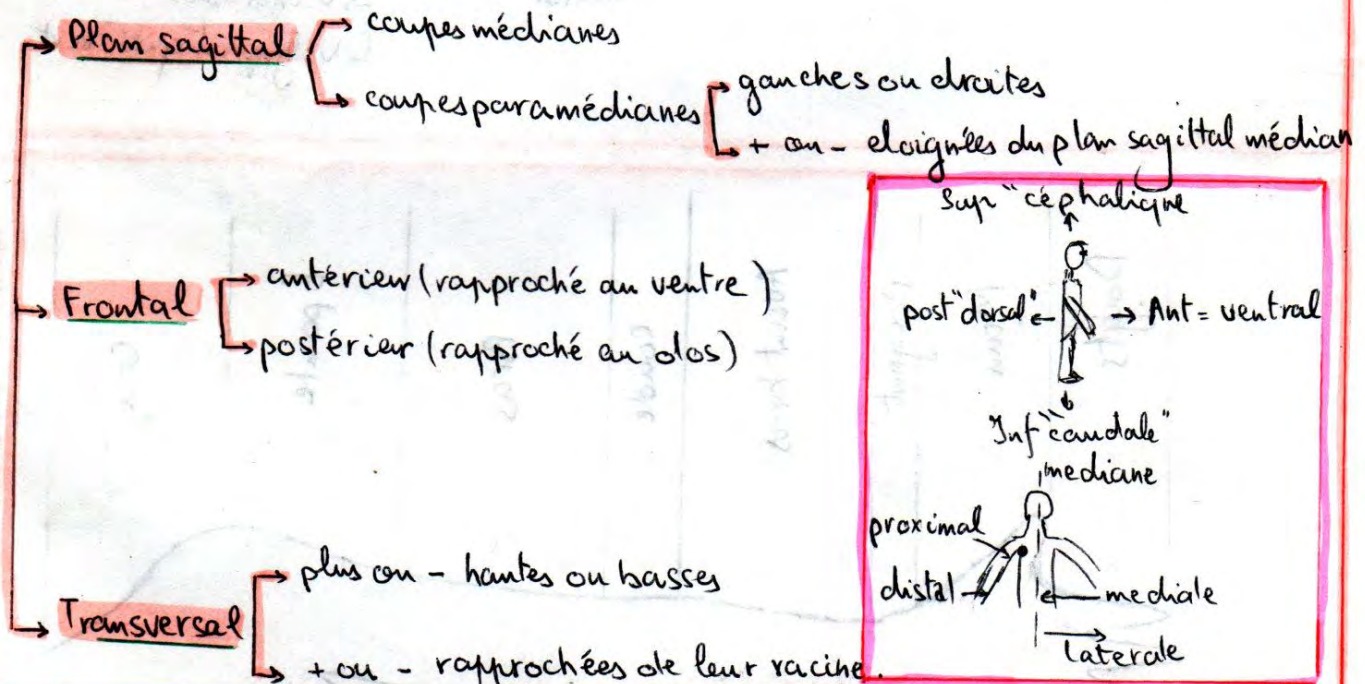 Plan sagittal
coupes médianes
coupes paramédianes
gauches ou droites
+ ou - eloignées du plan sagittal médian
Frontal
antérieur (rapproché au ventre)
postérieur (rapproché au dos)
Transversal
plus ou - hautes ou basses
+ ou - rapprochées de leur racine.
Sup "céphalique
post "dorsal"
Ant = ventral
Inf "caudale"
mediane
proximal
distal
mediale
laterale